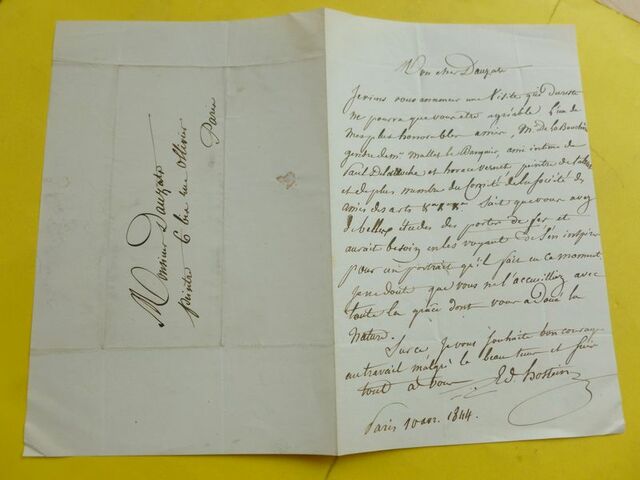 Mon cher Dauzats
Je viens vous annoncer une Visite qui du reste
ne pourra que vous etre agréable l'un de
mes plus honorables amis, Mr. de la Bouchère
gendre de Mr. Mallet le Banquier, ami intime de
Paul Delaroche et horace vernet, peintre de
et de plus membre du Comité de la Société des
amis des arts sait que vous avez
de belles études des portes de fer et
aurait besoin en les voyant de s'en inspirer
pour un portrait qu'il fait en ce moment
je ne doute que vous ne l'accueilliez avec
toute la grâce dont vous a doué la
nature.
Sur ce je vous souhaite bon courage
au travail malgré le beau tems et suis
tout à vous Ed hostein
Paris 10 avr. 1844.
Monsieur Dauzats
peintre 6 bis rue Ollivier
Paris